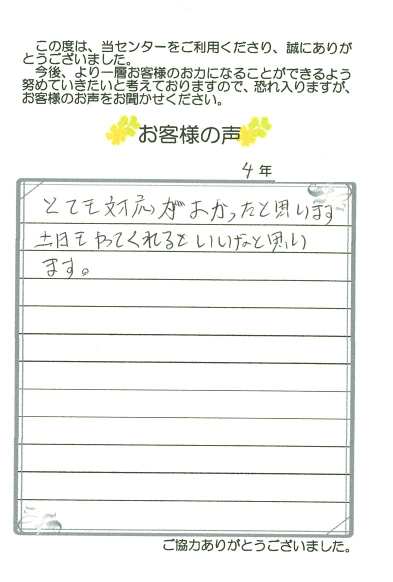 この度は、当センターをご利用くださり、誠にありが
とうございました。
今後、より一層お客様のお力になることができるよう
努めていきたいと考えておりますので、恐れ入りますが、
お客様のお声をお聞かせください。
お客様の声
4年
とても対応がよかったと思います
土日もやってくれるといいなと思い
ます。
ご協力ありがとうございました。